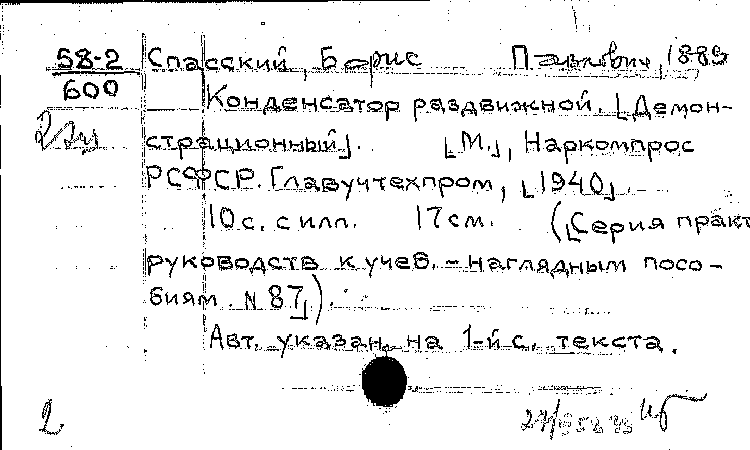 58-2 Спасский, Борис Павлович, 1889
600 Конденсатор раздвижной. [Демон-
страционный]. [М.], Наркомпрос
РСФСР. Главучтехпром, [1940].
10 с. с илл. 17 см. ([Серия практ
руководств к учеб.-наглядным посо-
биям. N 87]).
Авт. указан на 1-й с. текста.
2